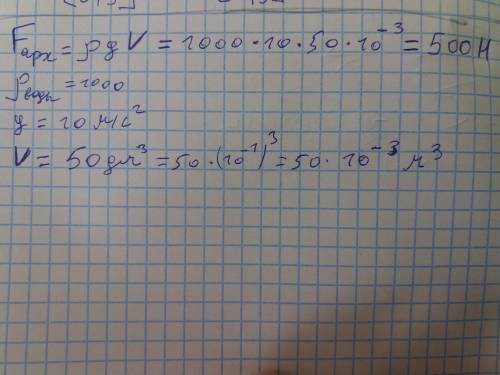 F арх = ρ g V = 1000 · 10 · 50 · 10⁻³ = 500 Н
ρ воды = 1000
g = 10 м/с²
V = 50 дм³ = 50 · (10⁻¹)³ = 50 · 10⁻³ м³